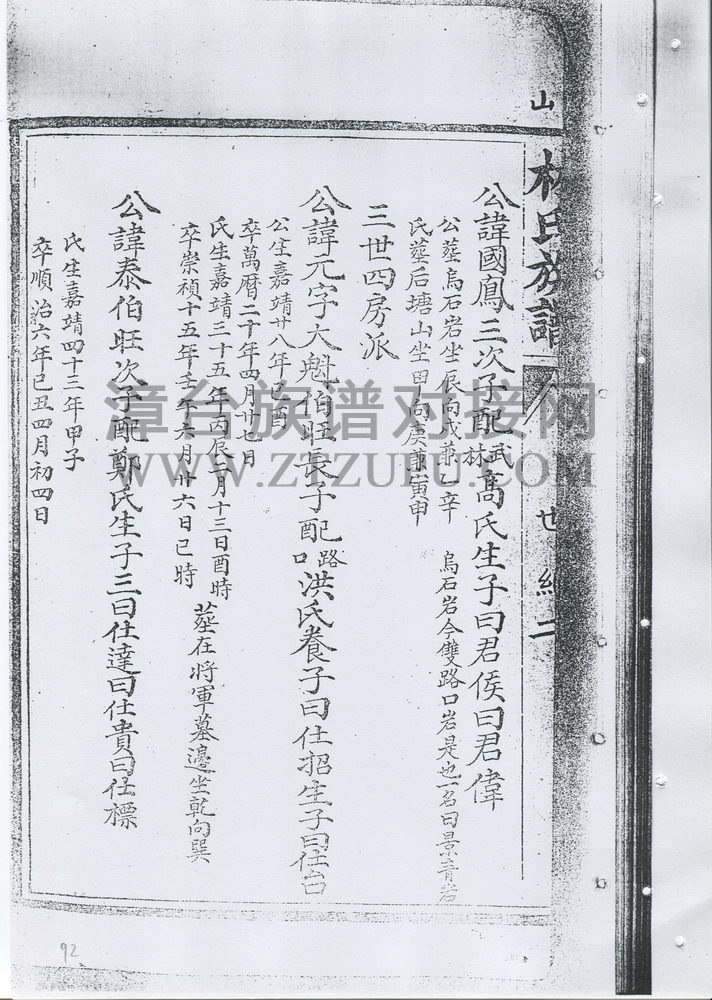 山
林氏族譜
世紀二
公諱國鳳三次子配武林高氏生子曰君侯曰君偉
公葬烏石岩坐辰向戌兼乙辛　烏石岩今雙路口岩是也一名曰景青岩
氏葬后塘山坐甲向庚兼寅申
三世四房派
公諱元字大魁伯旺長子配路口洪氏養子曰仕招生子曰仕台
公生嘉靖廿八年己酉
卒萬曆二十年四月廿七日
氏生嘉靖三十五年丙辰二月十三日酉時　葬在將軍墓邊坐乾向巽
卒崇禎十五年壬午六月廿六日巳時
公諱泰伯旺次子配鄭氏生子三曰仕達曰仕貴曰仕標
氏生嘉靖四十三年甲子
卒順治六年己丑四月初四日
漳台族谱对接网
WWW.ZTZUPU.COM
92